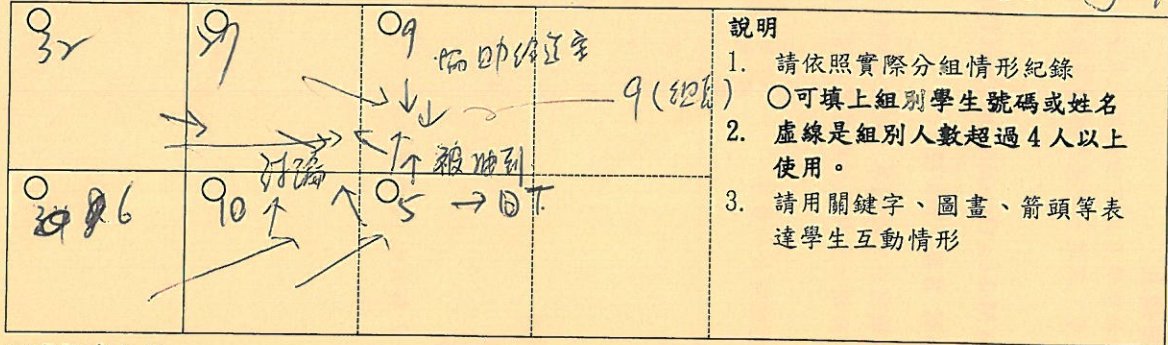 32
27
9
協助
9(組長)
討論
被抽到
6
10
5 → 回T.
說明
1. 請依照實際分組情形紀錄
○可填上組別學生號碼或姓名
2. 虛線是組別人數超過4人以上
使用。
3. 請用關鍵字、圖畫、箭頭等表
達學生互動情形